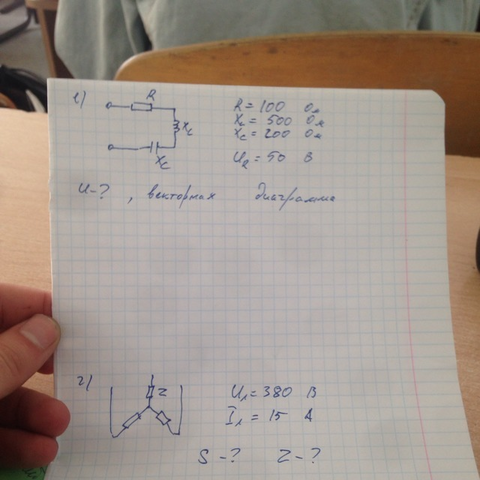 1)
R
R = 100 Ом
XL
XL = 500 Ом
XC = 200 Ом
XC
UR = 50 В
U - ? , векторная диаграмма
2)
Z
Uл = 380 В
Iл = 15 А
S - ? Z - ?